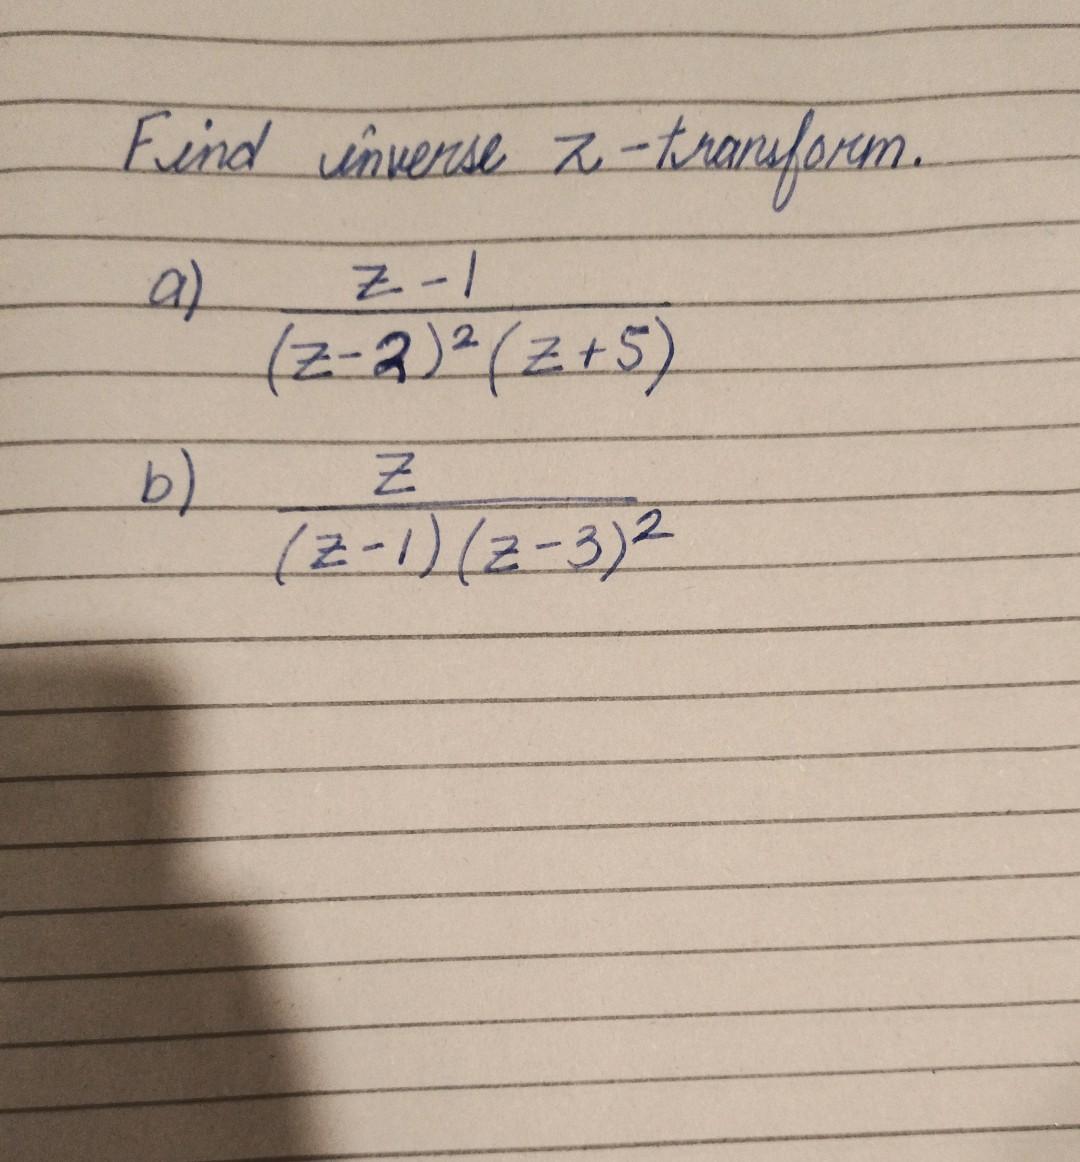 Find inverse z-transform.
a) z-1
(z-2)²(z+5)
b) z
(z-1)(z-3)²